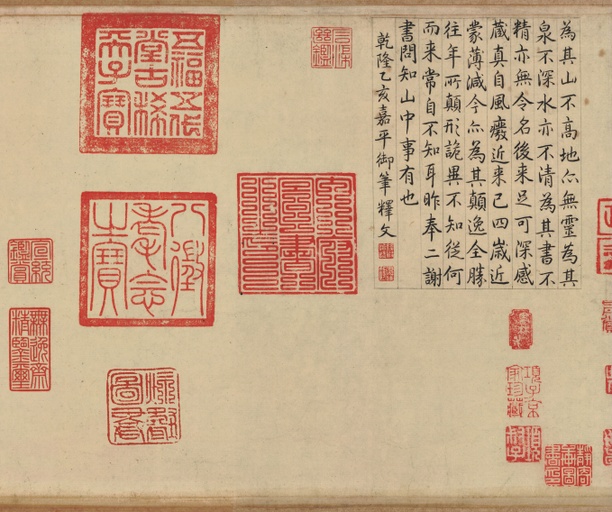 為其山不高地亦無靈為其
泉不深水亦不清為其書不
精亦無令名後來足可深感
藏真自風癈近來已四歲近
蒙薄減今亦為其顛逸全勝
往年所顛形詭異不知從何
而來常自不知耳昨奉二謝
書問知山中事有也
乾隆乙亥嘉平御筆釋文
項子京
家珍藏
五福五代
堂古稀
天子寶
八徵
耄念
之寶
宣統
鑑賞
無逸齋
精鑒璽